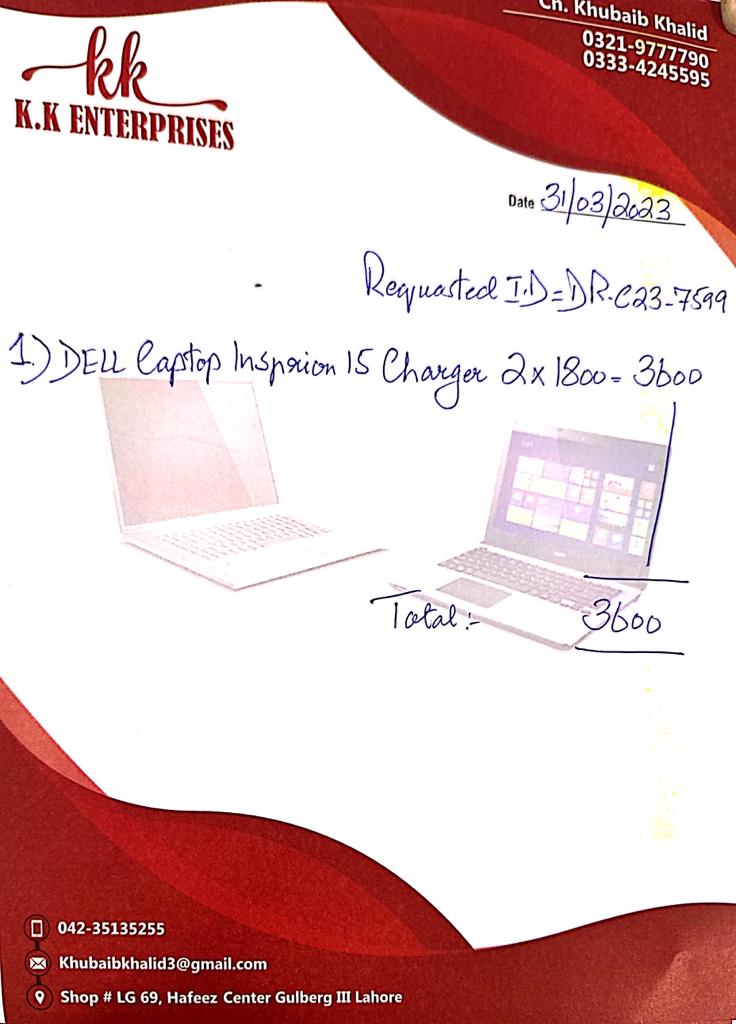 Ch. Khubaib Khalid
0321-9777790
0333-4245595
kk
K.K ENTERPRISES
Date 31/03/2023
Requasted I.D = DR-C23-7599
1.) DELL Laptop Insprion 15 Charger 2 x 1800 = 3600
Total :- 3600
042-35135255
Khubaibkhalid3@gmail.com
Shop # LG 69, Hafeez Center Gulberg III Lahore